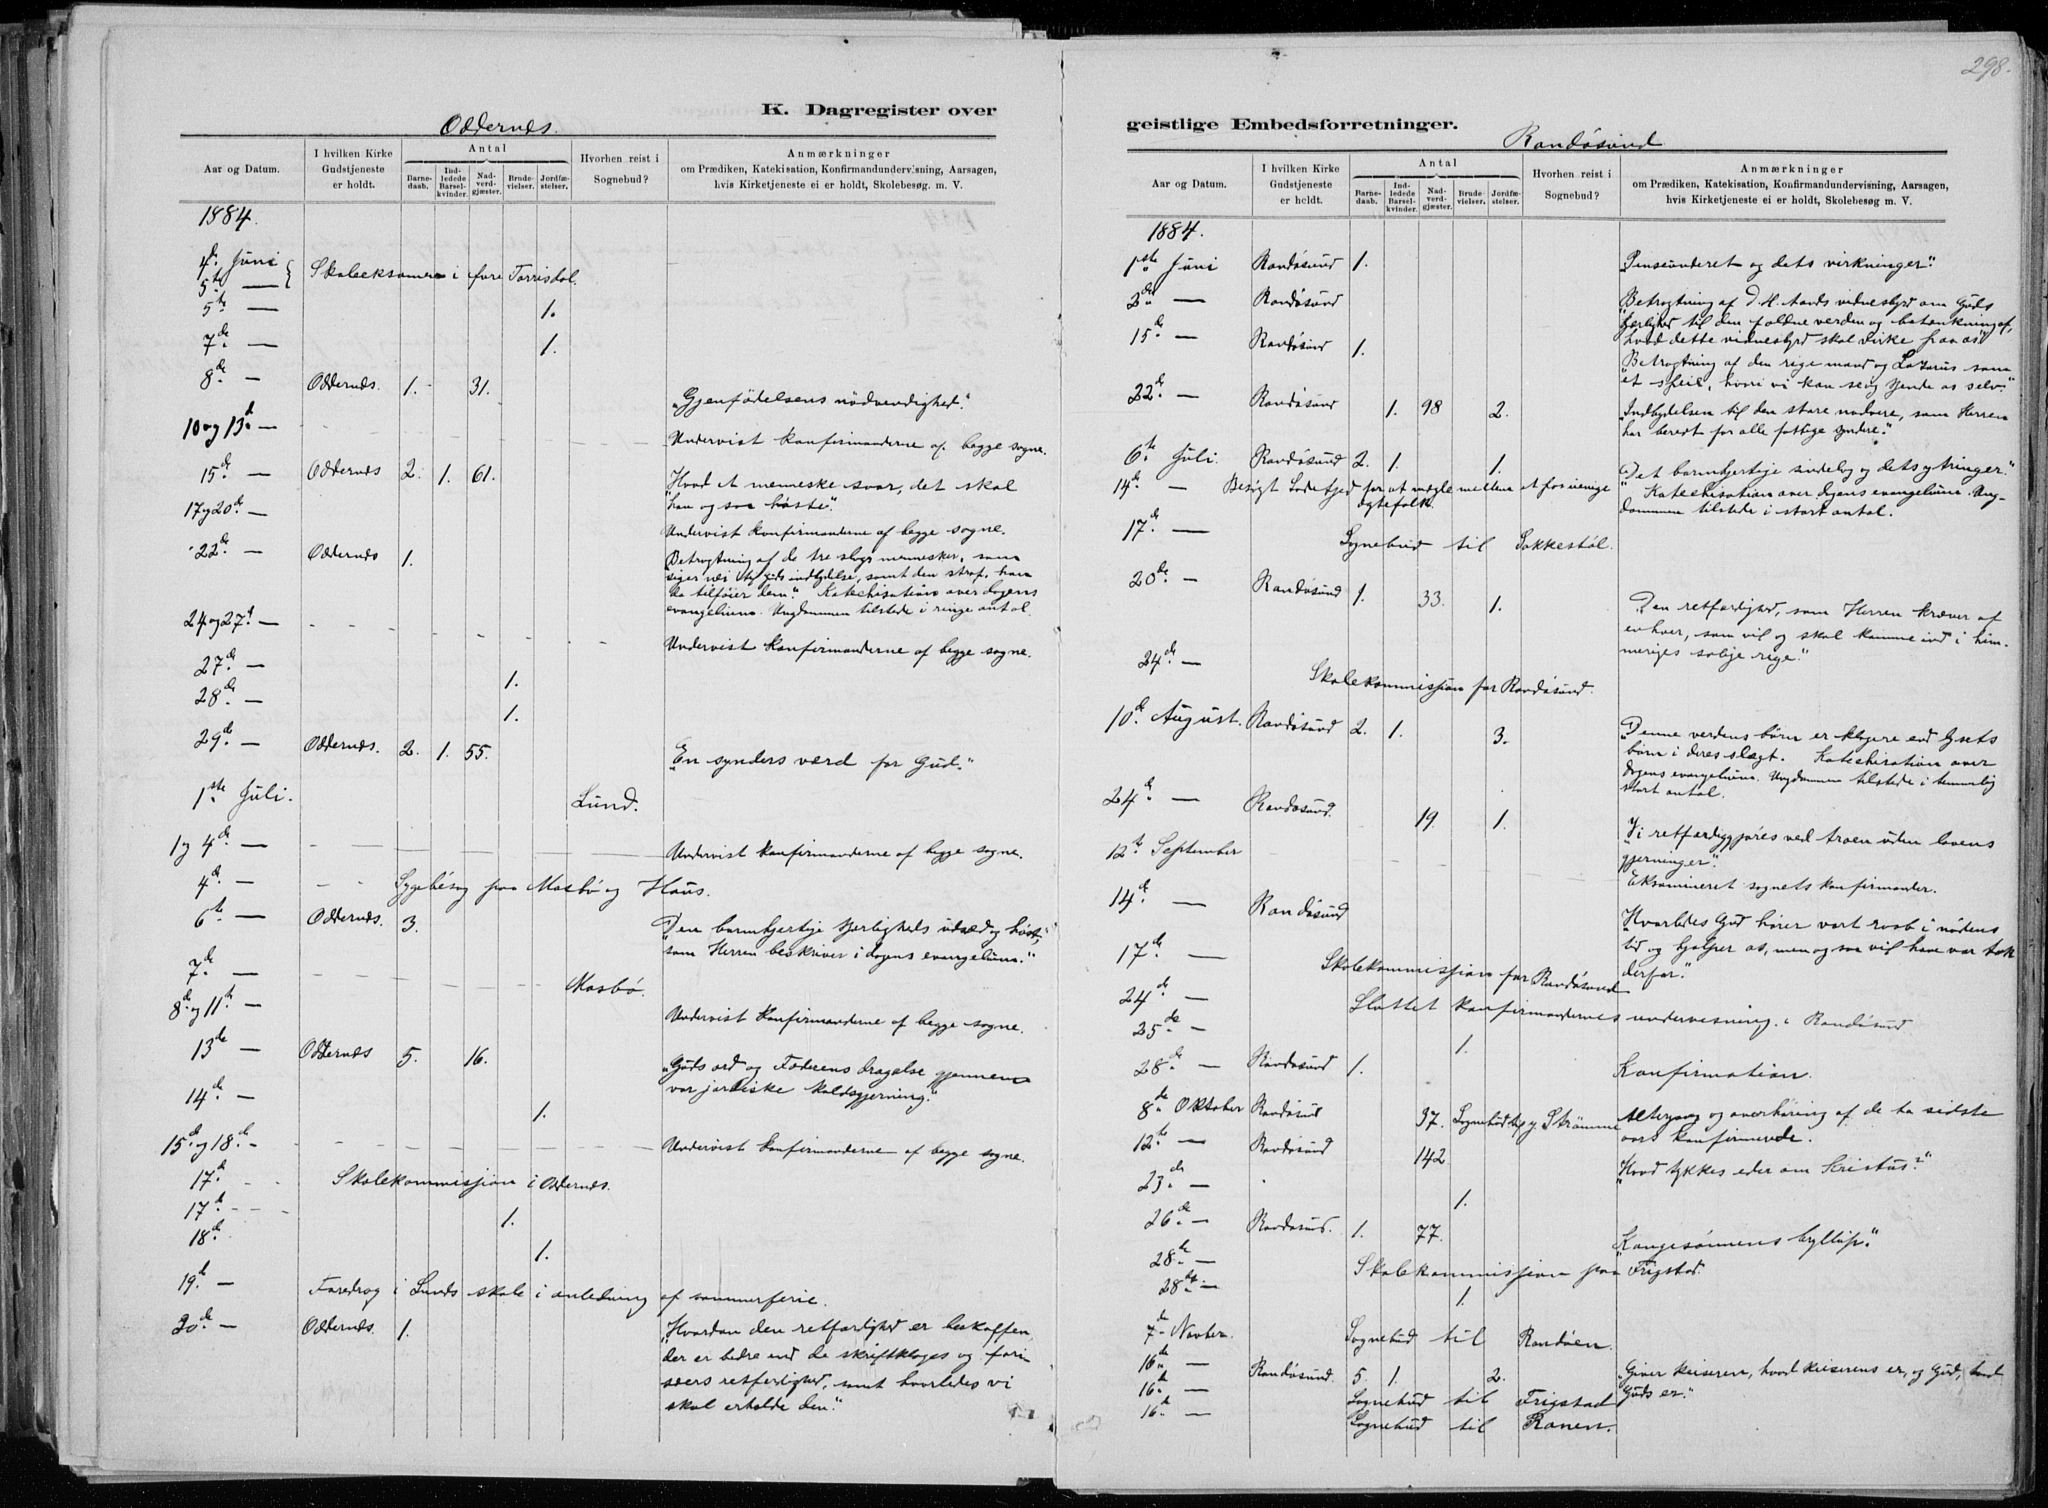 298.
K. Dagregister over
Oddernes.
Aar og Datum.
I hvilken Kirke Gudstjeneste er holdt.
Antal
Barnedaab.
Indledede Barselkvinder.
Nadvergjæster.
Brudevielser.
Jordfæstelser.
Hvorhen reist i Sognebud?
Anmærkninger
om Prædiken, Katekisation, Konfirmandundervisning, Aarsagen,
hvis Kirketjeneste ei er holdt, Skolebesøg m. V.
1884.
4de Juni
5te — Skoleeksamen i øvre Torrisdal.
5te — 1.
7de — 1.
8de — Oddernes. 1. 31. „Gjenfødelsens nødvendighed“.
10 og 13de — Undervist konfirmanderne af begge sogne.
15de — Oddernes 2. 1. 61. „Hvad et menneske saar, det skal
han og saa høste“.
17 og 20de — Undervist konfirmanderne af begge sogne.
22de — Oddernes 1. „Betragtning af de tre slags mennesker, som
siger nei til Guds indbydelse, samt den straf, han
da tilføier dem“. Katechisation over dagens
evangelium. Ungdommen tilstede i ringe antal.
24 og 27de — Undervist konfirmanderne af begge sogne.
27de — 1.
28de — 1.
29de — Oddernes. 2. 1. 55. „En synders værd for Gud.“
1ste Juli. Lund.
1 og 4de — Undervist konfirmanderne af begge sogne.
4de — Sygebesøg paa Mosbø og Haus.
6te — Oddernes. 3. „Den barmhjertige kjærligheds udsæd og høst,
som Herren beskriver i dagens evangelium.“
7de — Mosbø.
8de og 11te — Undervist konfirmanderne af begge sogne.
13de — Oddernes 5. 16. „Guds ord og Faderens dragelse gjennem
vor jordiske kaldsgjerning“.
14de — 1.
15de og 18de — Undervist konfirmanderne af begge sogne.
17de Skolekommissjon i Oddernes.
17de 1.
18de 1.
19de — Foredrag i Lunds skole i anledning af sommerferie.
20de — Oddernes. 1. „Hvordan den retfærdighed er beskaffen,
der er bedre end de skriftkloges og fari-
sæers retfærdighed, samt hvorledes vi
skal erholde den“.
geistlige Embedsforretninger.
Randøsund
Aar og Datum.
I hvilken Kirke Gudstjeneste er holdt.
Antal
Barnedaab.
Indledede Barselkvinder.
Nadvergjæster.
Brudevielser.
Jordfæstelser.
Hvorhen reist i Sognebud?
Anmærkninger
om Prædiken, Katekisation, Konfirmandundervisning, Aarsagen,
hvis Kirketjeneste ei er holdt, Skolebesøg m. V.
1884.
1ste Juni Randøsund 1. „Pinseunderet og dets virkninger“.
2den — Randøsund „Betragtning af d. H. Aands vidnesbyrd om Guds
kjærlighed til den faldne verden og betænkning af,
hvad dette vidnesbyrd skal virke paa os“
15de — Randøsund 1. „Betragtning af den rige mand og Lazarus som
et speil, hvori vi kan se og kjende os selv“.
22de — Randøsund 1. 98 2. „Indbydelsen til den store nadvere, som Herren
har beredt for alle fattige syndere“.
6te Juli. Randøsund 2. 1. 1. „Det barmhjertige sindelag og dets ytringer“.
Katechisation over dagens evangelium. Ung-
dommen tilstede i stort antal.
14de — Besøgt for at mægle mellem et forenige
ægtefolk.
17de — Sognebud til Sokkestøl.
20de — Randøsund 1. 33. 1. „Den retfærdighed, som Herren kræver af
enhver, som vil og skal komme ind i him-
meriges salige rige“.
24de — Skolekommissjon for Randøsund.
10de August. Randøsund 2. 1. 3. „Denne verdens børn er klogere end lysets
børn i deres slægt. Katechisation over
dagens evangelium. Ungdommen tilstede i temmelig
stort antal.
24de — Randøsund. 19. 1. „Vi retfærdiggjøres ved troen uden lovens
gjerninger“.
12te September Eksamineret sognets konfirmander.
14de — Randøsund „Hvorledes Gud hører vort raab i nødens
tid og hjælper os, men og saa vil have vor tak
derfor“.
17de — Skolekommissjon for Randøsund
24de — Sluttet konfirmandernes undervisning i Randøsund
25de — 1.
28de — Randøsund 1. Konfirmation.
8de Oktober Randøsund 37. Sognebud til Strømme Altergang og overhøring af de to sidste
aars konfirmerede.
12te — Randøsund 142 „Hvad tykkes eder om Kristus?“
23de — 1.
26de — Randøsund. 1. 77. „Kongesønnens bryllup“.
28de — Skolekommissjon paa Frigstad.
28de — 1.
7de Novber. Sognebud til Randøen.
16de — Randøsund. 5. 1. 2. „Giver keiseren, hvad keiserens er, og Gud, hvad
Guds er“.
16de — Sognebud til Frigstad
16de — Sognebud til Ronen.